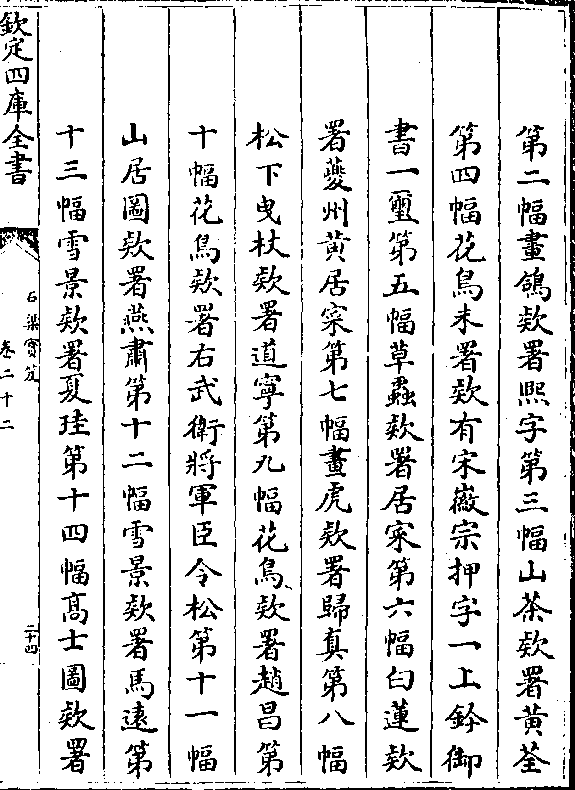 第二幅畫鴿欵署熙字第三幅山茶欵署黄荃
第四幅花鳥未署欵有宋徽宗押字一上鈐御
書一璽第五幅草蟲欵署居寀第六幅白蓮欵
署夔州黄居寀第七幅畫虎欵署歸真第八幅
松下曳杖欵署道寧第九幅花鳥欵署趙昌第
十幅花鳥欵署右武衛將軍臣令松第十一幅
山居圖欵署燕肅第十二幅雪景欵署馬遠第
十三幅雪景欵署夏珪第十四幅髙士圖欵署
欽定四庫全書
石渠寳笈
卷二十二
二十四